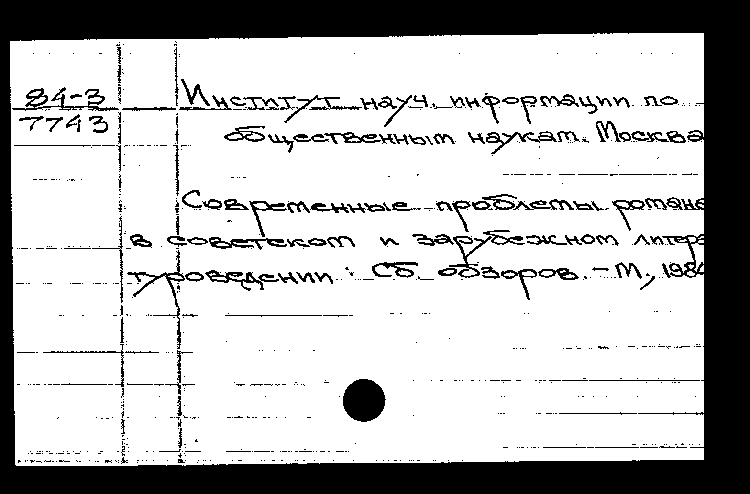 84-3
7743
Институт науч. информации по
общественным наукам. Москва
Современные проблемы романа
в советском и зарубежном литера
туроведении: Сб. обзоров. – М., 1984